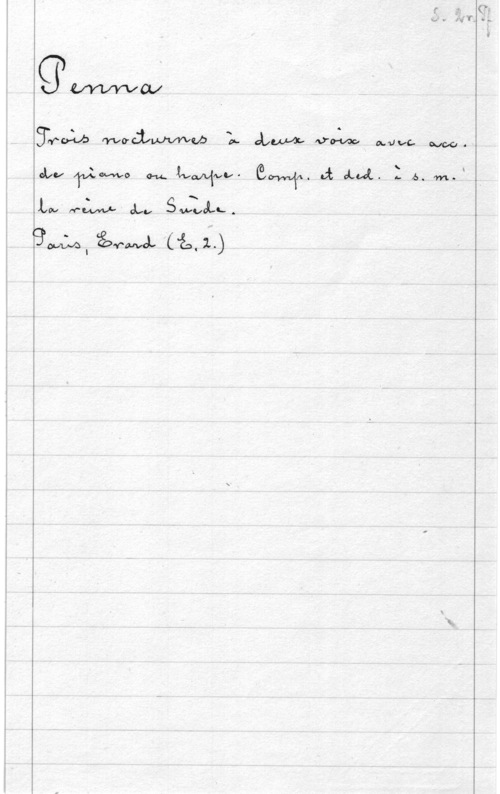 S. 2r. Pf
Penna
Trois nocturnes à deux voix avec acc.
de piano ou harpe. Comp. et ded. à s. m.
la reine de Suède.
Paris, Erard (E, 2.)